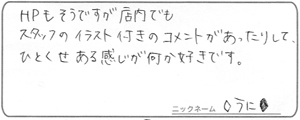 HPもそうですが店内でも
スタッフのイラスト付きのコメントがあったりして、
ひとくせある感じが何か好きです。
ニックネーム ◇うに◆